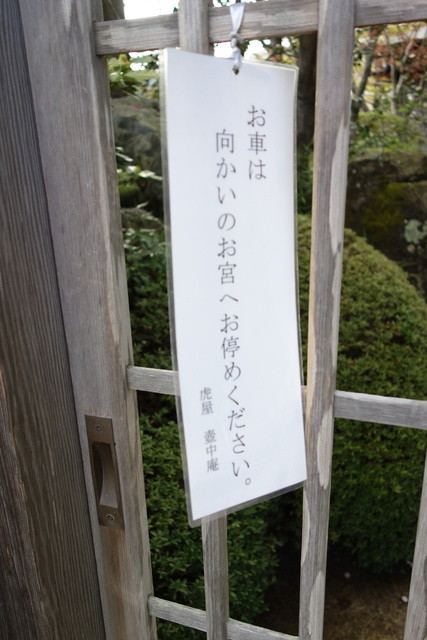 お車は
向かいのお宮へお停めください。
虎屋 壺中庵